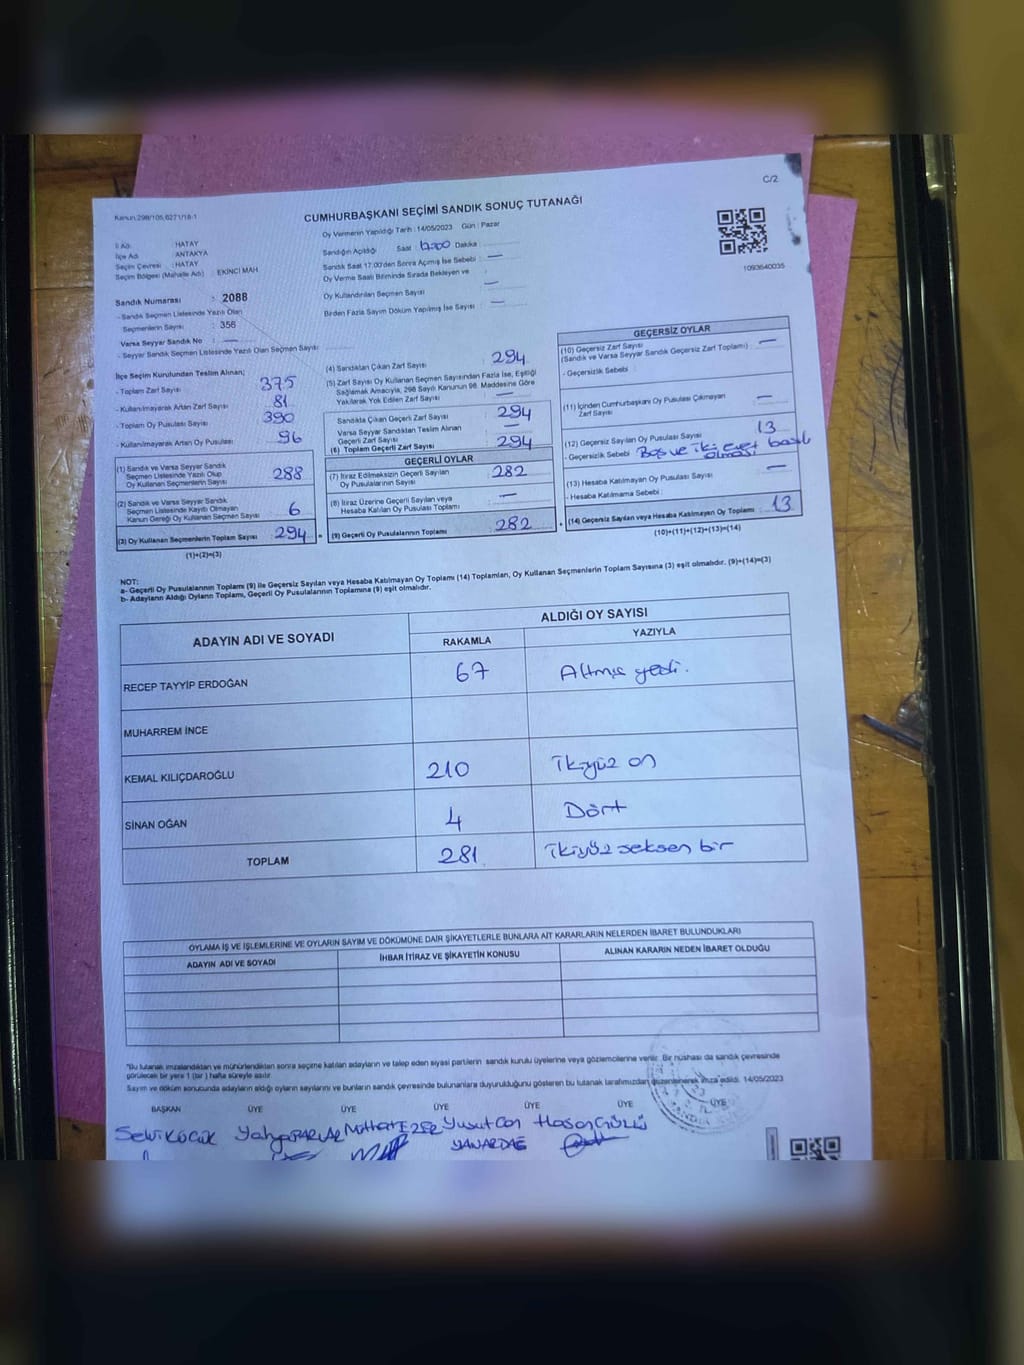 C/2
Kanun:298/105,6271/18-1
CUMHURBAŞKANI SEÇİMİ SANDIK SONUÇ TUTANAĞI
Oy Vermenin Yapıldığı Tarih : 14/05/2023 Gün : Pazar
İl Adı : HATAY
İlçe Adı : ANTAKYA
Seçim Çevresi : HATAY
Seçim Bölgesi (Mahalle Adı) : EKİNCİ MAH
Sandığın Açıldığı Saat : 17:00 Dakika :
Sandık Saat 17.00'den Sonra Açılmış İse Sebebi : —
Oy Verme Saati Bitiminde Sırada Bekleyen ve
Oy Kullandırılan Seçmen Sayısı : —
Birden Fazla Sayım Döküm Yapılmış İse Sayısı : —
1093640035
Sandık Numarası : 2088
- Sandık Seçmen Listesinde Yazılı Olan
Seçmenlerin Sayısı : 356
Varsa Seyyar Sandık No : —
- Seyyar Sandık Seçmen Listesinde Yazılı Olan Seçmen Sayısı :
İlçe Seçim Kurulundan Teslim Alınan;
- Toplam Zarf Sayısı : 375
- Kullanılmayarak Artan Zarf Sayısı : 81
- Toplam Oy Pusulası Sayısı : 390
- Kullanılmayarak Artan Oy Pusulası : 96
(1) Sandık ve Varsa Seyyar Sandık
Seçmen Listesinde Yazılı Olup
Oy Kullanan Seçmen Sayısı : 288
(2) Sandık ve Varsa Seyyar Sandık
Seçmen Listesinde Kayıtlı Olmayan
Kanun Gereği Oy Kullanan Seçmen Sayısı : 6
(3) Oy Kullanan Seçmenlerin Toplam Sayısı : 294
(1)+(2)=(3)
(4) Sandıktan Çıkan Zarf Sayısı : 294
(5) Zarf Sayısı Oy Kullanan Seçmen Sayısından Fazla İse, Eşitliği
Sağlamak Amacıyla, 298 Sayılı Kanunun 98. Maddesine Göre
Yakılarak Yok Edilen Zarf Sayısı : —
Sandıkta Çıkan Geçerli Zarf Sayısı : 294
Varsa Seyyar Sandıktan Teslim Alınan
Geçerli Zarf Sayısı : —
(6) Toplam Geçerli Zarf Sayısı : 294
GEÇERLİ OYLAR
(7) İtiraz Edilmeksizin Geçerli Sayılan
Oy Pusulalarının Sayısı : 282
(8) İtiraz Üzerine Geçerli Sayılan veya
Hesaba Katılan Oy Pusulası Toplamı : —
(9) Geçerli Oy Pusulalarının Toplamı : 282
GEÇERSİZ OYLAR
(10) Geçersiz Zarf Sayısı : —
(Sandık ve Varsa Seyyar Sandık Geçersiz Zarf Toplamı)
- Geçersizlik Sebebi :
(11) İçinden Cumhurbaşkanı Oy Pusulası Çıkmayan
Zarf Sayısı : —
(12) Geçersiz Sayılan Oy Pusulası Sayısı : 13
- Geçersizlik Sebebi : Boş ve iki evet basılı
olması
(13) Hesaba Katılmayan Oy Pusulası Sayısı : —
- Hesaba Katılmama Sebebi :
(14) Geçersiz Sayılan veya Hesaba Katılmayan Oy Toplamı : 13
(10)+(11)+(12)+(13)=(14)
NOT:
a- Geçerli Oy Pusulalarının Toplamı (9) ile Geçersiz Sayılan veya Hesaba Katılmayan Oy Toplamı (14) Toplamları, Oy Kullanan Seçmenlerin Toplam Sayısına (3) eşit olmalıdır. (9)+(14)=(3)
b- Adayların Aldığı Oyların Toplamı, Geçerli Oy Pusulalarının Toplamına (9) eşit olmalıdır.
ADAYIN ADI VE SOYADI
ALDIĞI OY SAYISI
RAKAMLA YAZIYLA
RECEP TAYYİP ERDOĞAN 67 Altmış yedi.
MUHARREM İNCE
KEMAL KILIÇDAROĞLU 210 ikiyüz on
SİNAN OĞAN 4 Dört
TOPLAM 281 ikiyüz seksen bir
OYLAMA İŞ VE İŞLEMLERİNE VE OYLARIN SAYIM VE DÖKÜMÜNE DAİR ŞİKAYETLERLE BUNLARA AİT KARARLARIN NELERDEN İBARET BULUNDUKLARI
ADAYIN ADI VE SOYADI İHBAR İTİRAZ VE ŞİKAYETİN KONUSU ALINAN KARARIN NEDEN İBARET OLDUĞU
*Bu tutanak imzalandıktan ve mühürlendikten sonra seçime katılan adayların ve talep eden siyasi partilerin sandık kurulu üyelerine veya gözlemcilerine verilir. Bir nüshası da sandık çevresinde
görülecek bir yere 1 (bir) hafta süreyle asılır.
Sayım ve döküm sonucunda adayların aldığı oyların sayılarını ve bunların sandık çevresinde bulunanlara duyurulduğunu gösteren bu tutanak tarafımızdan düzenlenerek imza edildi. 14/05/2023
BAŞKAN ÜYE ÜYE ÜYE ÜYE ÜYE ÜYE
Selvi KÜÇÜK Yahya PARLAR Mithat EZER Yusuf Can Hasan
YANARDAĞ